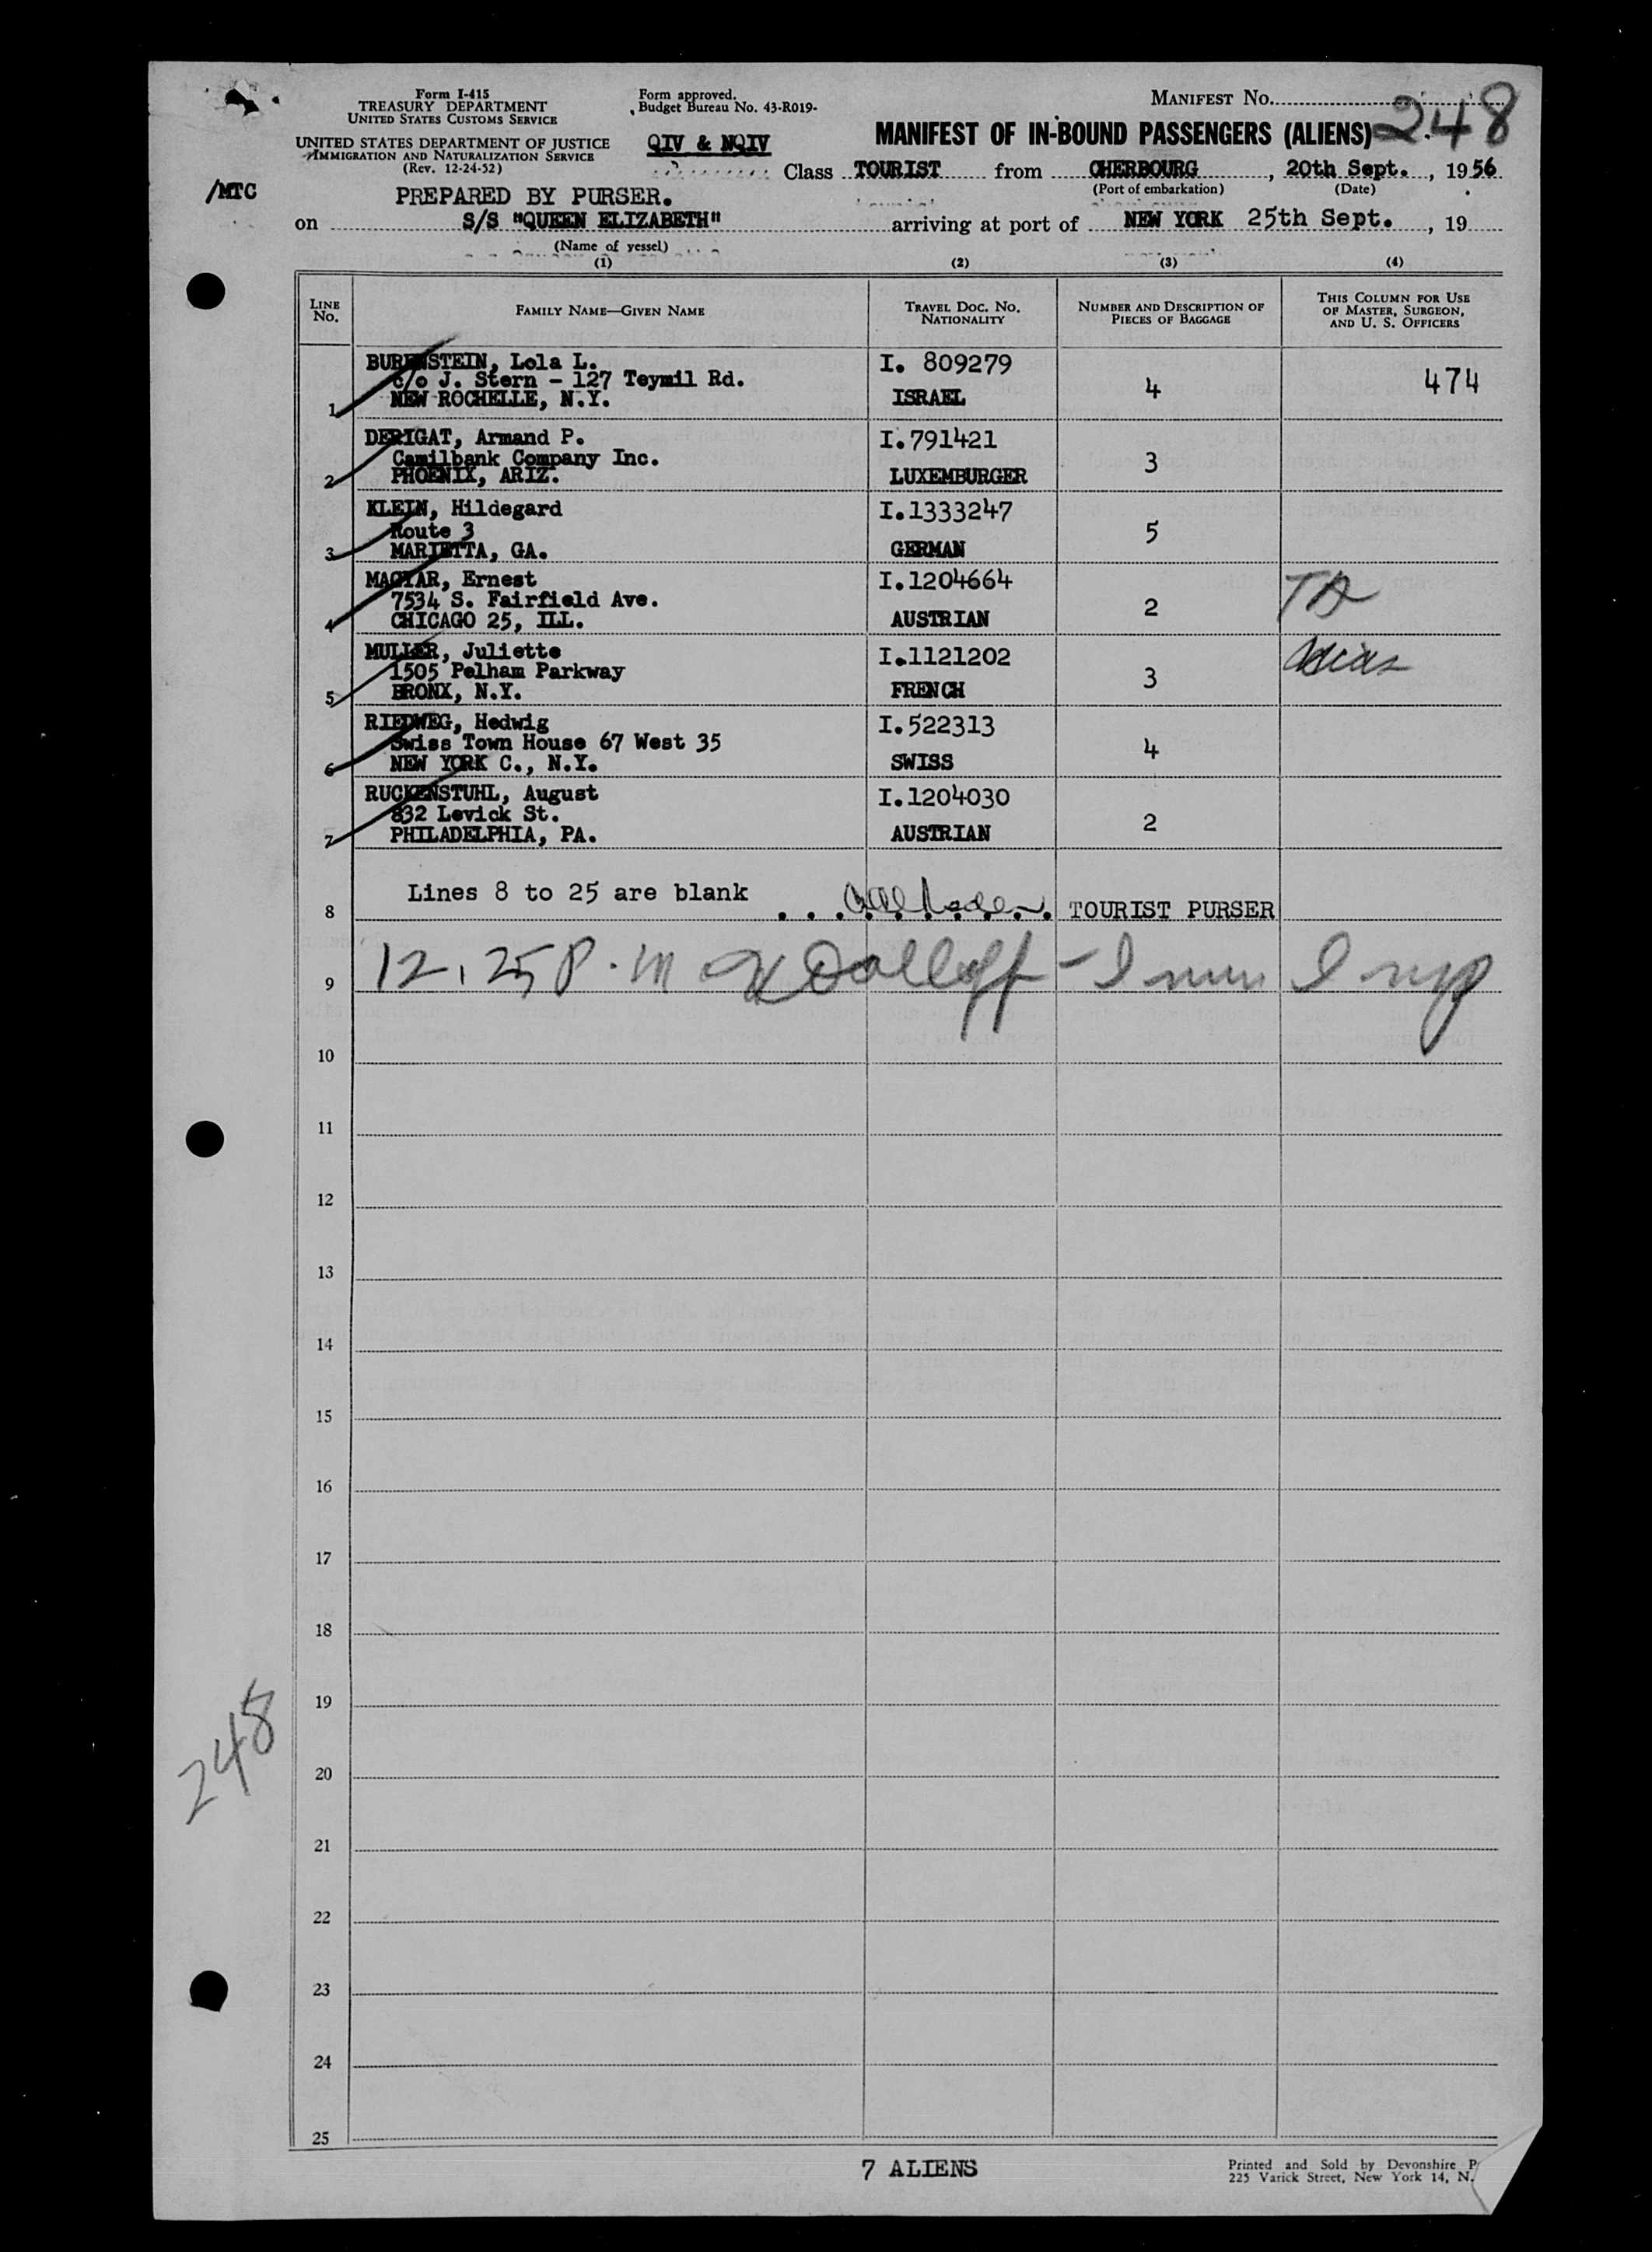 Form I-415
TREASURY DEPARTMENT
UNITED STATES CUSTOMS SERVICE
UNITED STATES DEPARTMENT OF JUSTICE
IMMIGRATION AND NATURALIZATION SERVICE
(Rev. 12-24-52)
Form approved.
Budget Bureau No. 43-R019-
QIV & NQIV
MANIFEST NO. 248
MANIFEST OF IN-BOUND PASSENGERS (ALIENS)
Class TOURIST from CHERBOURG, 20th Sept., 1956
(Port of embarkation) (Date)
/MTC
PREPARED BY PURSER.
on S/S "QUEEN ELIZABETH" arriving at port of NEW YORK 25th Sept., 19
(Name of vessel)
(1) (2) (3) (4)
LINE NO. FAMILY NAME—GIVEN NAME TRAVEL DOC. NO. NATIONALITY NUMBER AND DESCRIPTION OF PIECES OF BAGGAGE THIS COLUMN FOR USE OF MASTER, SURGEON, AND U. S. OFFICERS
BURENSTEIN, Lola L. I. 809279
c/o J. Stern - 127 Teymil Rd. 4 474
1 NEW ROCHELLE, N.Y. ISRAEL
DERIGAT, Armand P. I.791421
Camilbank Company Inc. 3
2 PHOENIX, ARIZ. LUXEMBURGER
KLEIN, Hildegard I.1333247
Route 3 5
3 MARIETTA, GA. GERMAN
MAGYAR, Ernest I.1204664
7534 S. Fairfield Ave. 2
4 CHICAGO 25, ILL. AUSTRIAN
MULLER, Juliette I.1121202
1505 Pelham Parkway 3
5 BRONX, N.Y. FRENCH
RIEDWEG, Hedwig I.522313
Swiss Town House 67 West 35 4
6 NEW YORK C., N.Y. SWISS
RUCKENSTUHL, August I.1204030
832 Levick St. 2
7 PHILADELPHIA, PA. AUSTRIAN
Lines 8 to 25 are blank
8 TOURIST PURSER
9 12.25 P.M
10
11
12
13
14
15
16
17
18
19
248
20
21
22
23
24
25
7 ALIENS
Printed and Sold by Devonshire P
225 Varick Street, New York 14, N.